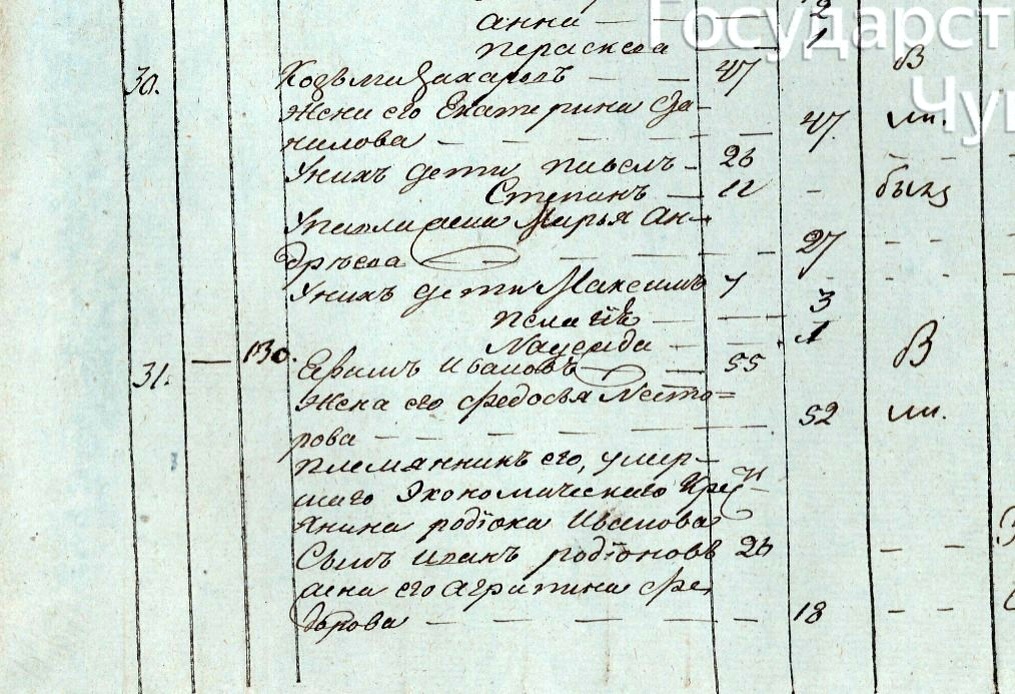 анна — — 2
пераскева — 1
30. Козьма Захаровъ — — 47 В
Жена его Екатерина Да-
нилова — — — — 47 ли.
Унихъ дети павелъ - 26
Степанъ — 12 - быхъ
Упавла жена Марья Ан-
дрѣева — — — 27 - -
Унихъ дети Максимъ 7 - -
пелагѣя — — 3
— — 1
31. — 130. Ефимъ Ивановъ — 55 В
Жена его Федосья Несто=
рова — — — — 52 ли.
племянникъ его, умер-
шаго Экономическаго Кресть-
янина родїона Иванова
Сынъ иванъ родїоновъ 26 - -
жена его агрипина Фе-
дорова — — — — 18 - -
Государст
Чу